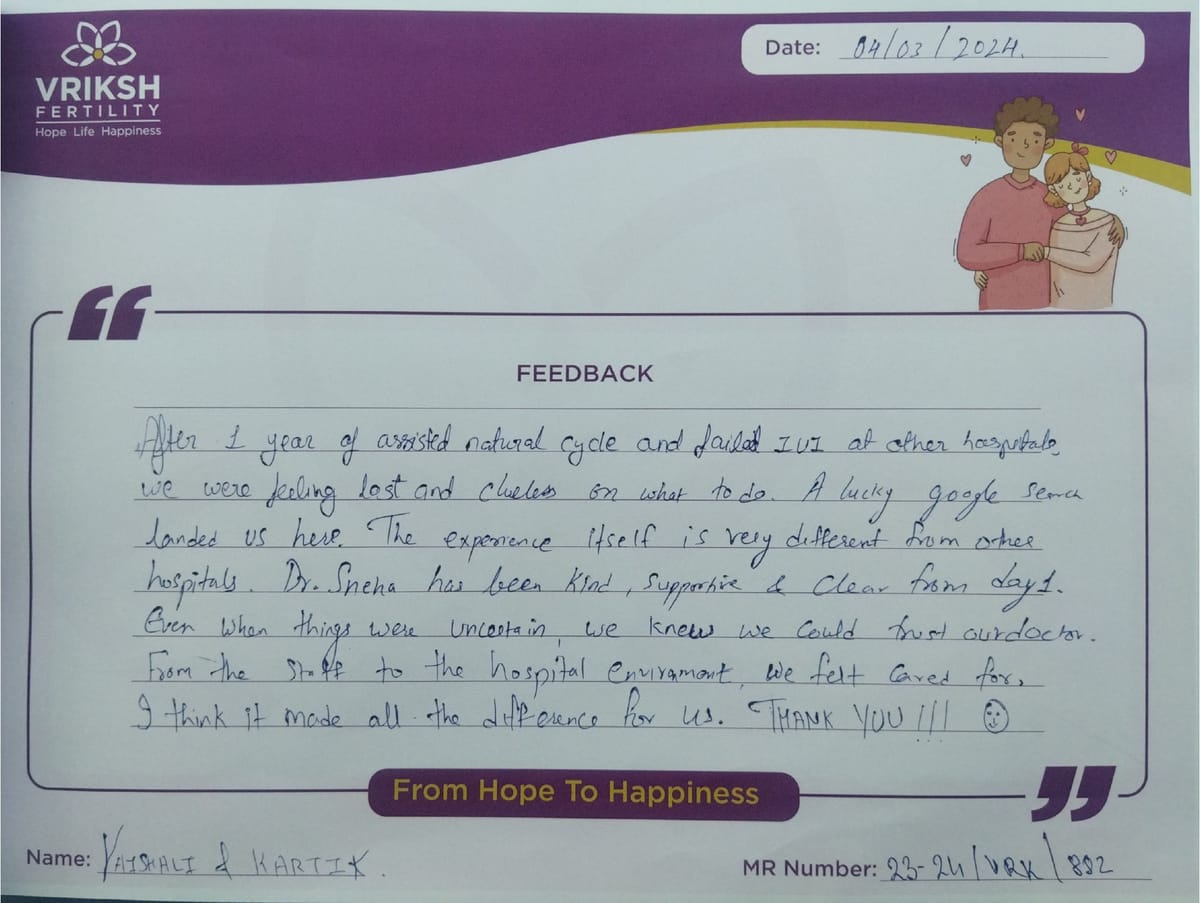 VRIKSH
FERTILITY
Hope Life Happiness
Date: 04/03/2024.
FEEDBACK
After 1 year of assisted natural cycle and failed IUI at other hospitals,
we were feeling lost and clueless on what to do. A lucky google search
landed us here. The experience itself is very different from other
hospitals. Dr. Sneha has been kind, supportive & clear from day 1.
Even when things were uncertain, we knew we could trust our doctor.
From the staff to the hospital enviramont, we felt cared for,
I think it made all the difference for us. THANK YOU !!!
From Hope To Happiness
Name: VAISHALI & KARTIK.
MR Number: 23-24/VRK/892